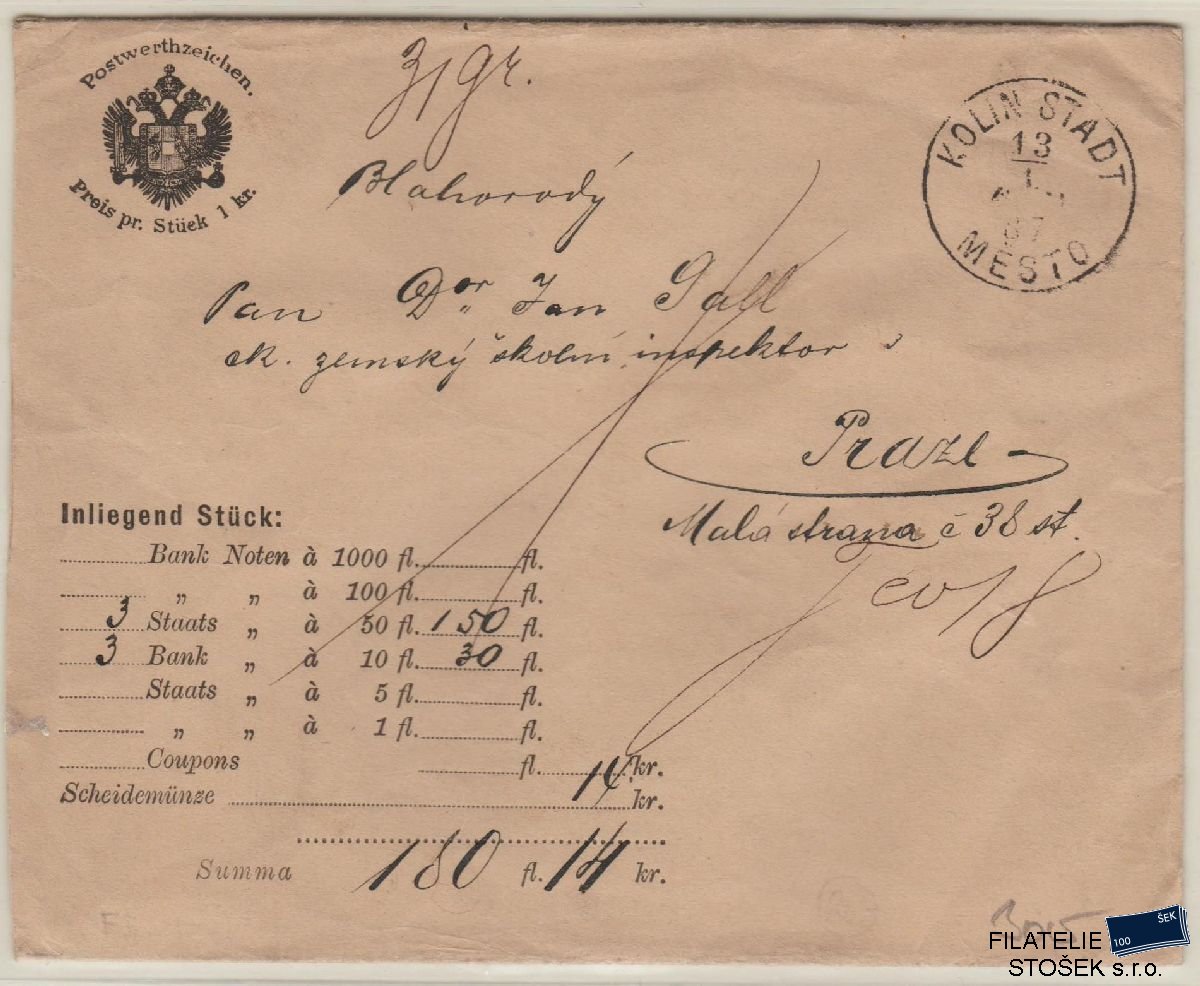 Postwerthzeichen.
Preis pr. Stück 1 kr.
31 gr.
KOLIN STADT
13
1
87
MESTO
Blahorodý
Pan Dor Jan Gall
ck. zemský školní inspektor v
Praze
Malá strana č 38 st.
Inliegend Stück:
Bank Noten à 1000 fl. fl.
„ „ à 100 fl. fl.
3 Staats „ à 50 fl. 150 fl.
3 Bank „ à 10 fl. 30 fl.
Staats „ à 5 fl. fl.
„ „ à 1 fl. fl.
Coupons fl. kr.
Scheidemünze 14 kr.
Summa 180 fl. 14 kr.
ŠEK
100
FILATELIE
STOŠEK s.r.o.